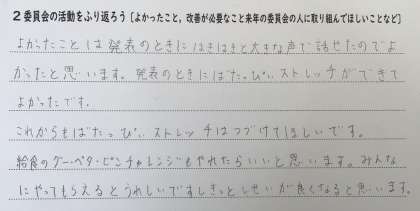 2 委員会の活動をふり返ろう〔よかったこと，改善が必要なこと来年の委員会の人に取り組んでほしいことなど〕
よかったことは発表のときにはきはきと大きな声で話せたのでよ
かったと思います。発表のときにばたっぴぃストレッチができて
よかったです.
これからもばたっぴぃストレッチはつづけてほしいです。
給食のグー・ペタ・ピンチャレンジもやれたらいいと思います。みんな
にやってもらえるとうれしいですしきっとしせいが良くなると思います.